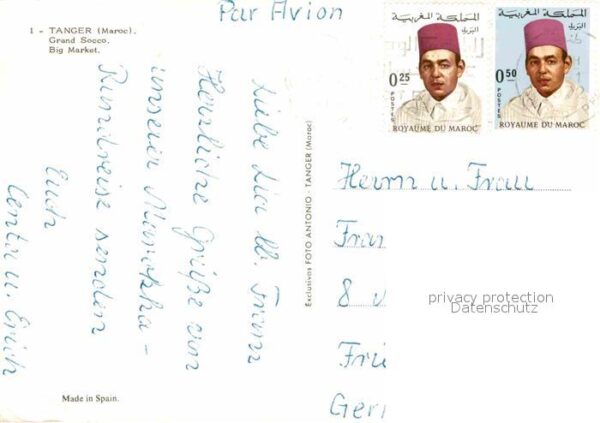 Par Avion
1 - TANGER (Maroc).
Grand Socco.
Big Market.
المملكة المغربية
البريد
0.25
POSTES
ROYAUME DU MAROC
المملكة المغربية
البريد
0.50
POSTES
ROYAUME DU MAROC
Liebe Lia lb. Franz
Herzliche Grüße von
unserer Marokko-
Rundreise senden
Euch
Centa u. Erich
Exclusivas FOTO ANTONIO - TANGER (Maroc)
Herrn u. Frau
Fran
8
Frie
Germ
privacy protection
Datenschutz
Made in Spain.